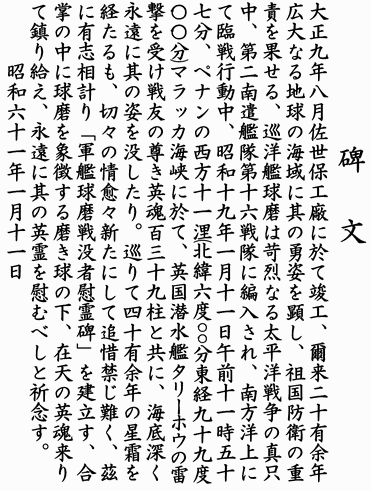 碑文
大正九年八月佐世保工廠に於て竣工、爾来二十有余年
広大なる地球の海域に其の勇姿を顕し、祖国防衛の重
責を果せる、巡洋艦球磨は苛烈なる太平洋戦争の真只
中、第二南遣艦隊第十六戦隊に編入され、南方洋上に
て臨戦行動中、昭和十九年一月十一日午前十一時五十
七分、ペナンの西方十一浬(北緯六度〇〇分東経九十九度
〇〇分)マラッカ海峡に於て、英国潜水艦タリーホウの雷
撃を受け戦友の尊き英魂百三十九柱と共に、海底深く
永遠に其の姿を没したり。巡りて四十有余年の星霜を
経たるも、切々の情愈々新たにして追惜禁じ難く、玆
に有志相計り「軍艦球磨戦没者慰霊碑」を建立す、合
掌の中に球磨を象徴する磨き球の下、在天の英魂来り
て鎮り給え、永遠に其の英霊を慰むべしと祈念す。
昭和六十一年一月十一日